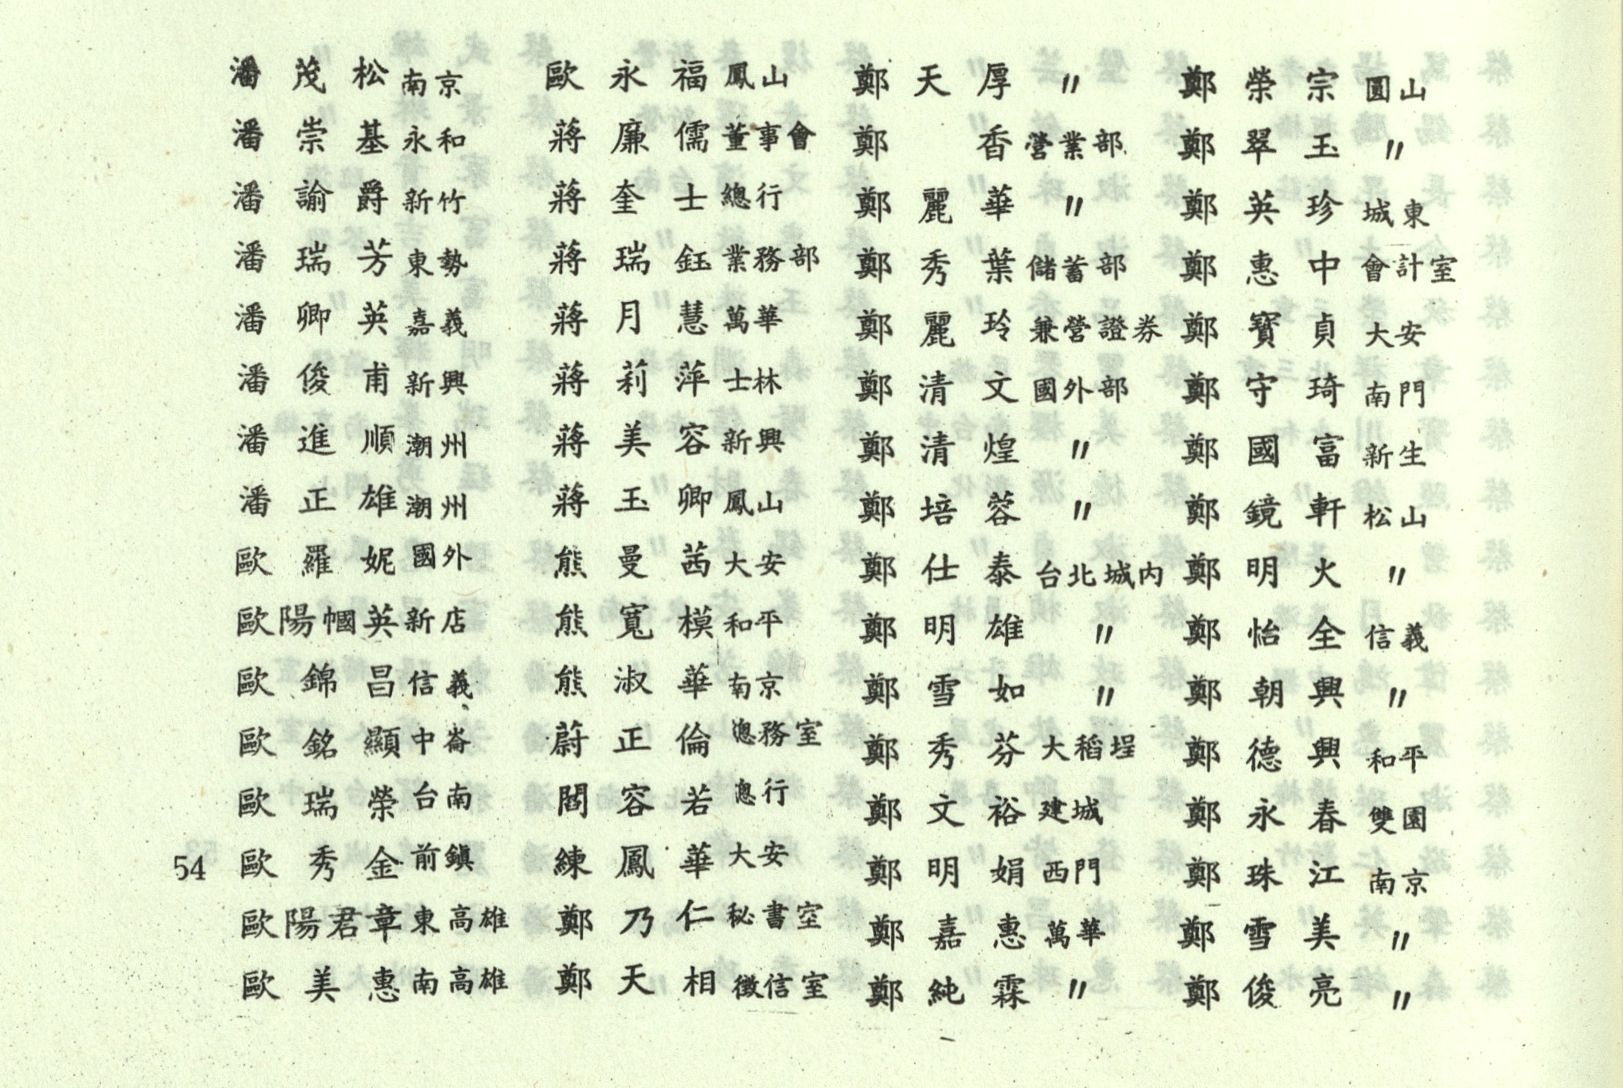 潘茂松 南京
潘崇基 永和
潘諭爵 新竹
潘瑞芳 東勢
潘卿英 嘉義
潘俊甫 新興
潘進順 潮州
潘正雄 潮州
歐羅妮 國外
歐陽幗英 新店
歐錦昌 信義
歐銘顯 中崙
歐瑞榮 台南
歐秀金 前鎮
歐陽君章 東高雄
歐美惠 南高雄
歐永福 鳳山
蔣廉儒 董事會
蔣奎士 總行
蔣瑞鈺 業務部
蔣月慧 萬華
蔣莉萍 士林
蔣美容 新興
蔣玉卿 鳳山
熊曼茜 大安
熊寬模 和平
熊淑華 南京
蔚正倫 總務室
閻容若 總行
練鳳華 大安
鄭乃仁 秘書室
鄭天相 徵信室
鄭天厚 〃
鄭香 營業部
鄭麗華 〃
鄭秀葉 儲蓄部
鄭麗玲 兼營證券
鄭清文 國外部
鄭清煌 〃
鄭培蓉 〃
鄭仕泰 台北城內
鄭明雄 〃
鄭雪如 〃
鄭秀芬 大稻埕
鄭文裕 建城
鄭明娟 西門
鄭嘉惠 萬華
鄭純霖 〃
鄭榮宗 圓山
鄭翠玉 〃
鄭英珍 城東
鄭惠中 會計室
鄭寶貞 大安
鄭守琦 南門
鄭國富 新生
鄭鏡軒 松山
鄭明火 〃
鄭怡全 信義
鄭朝興 〃
鄭德興 和平
鄭永春 雙園
鄭珠江 南京
鄭雪美 〃
鄭俊亮 〃
54